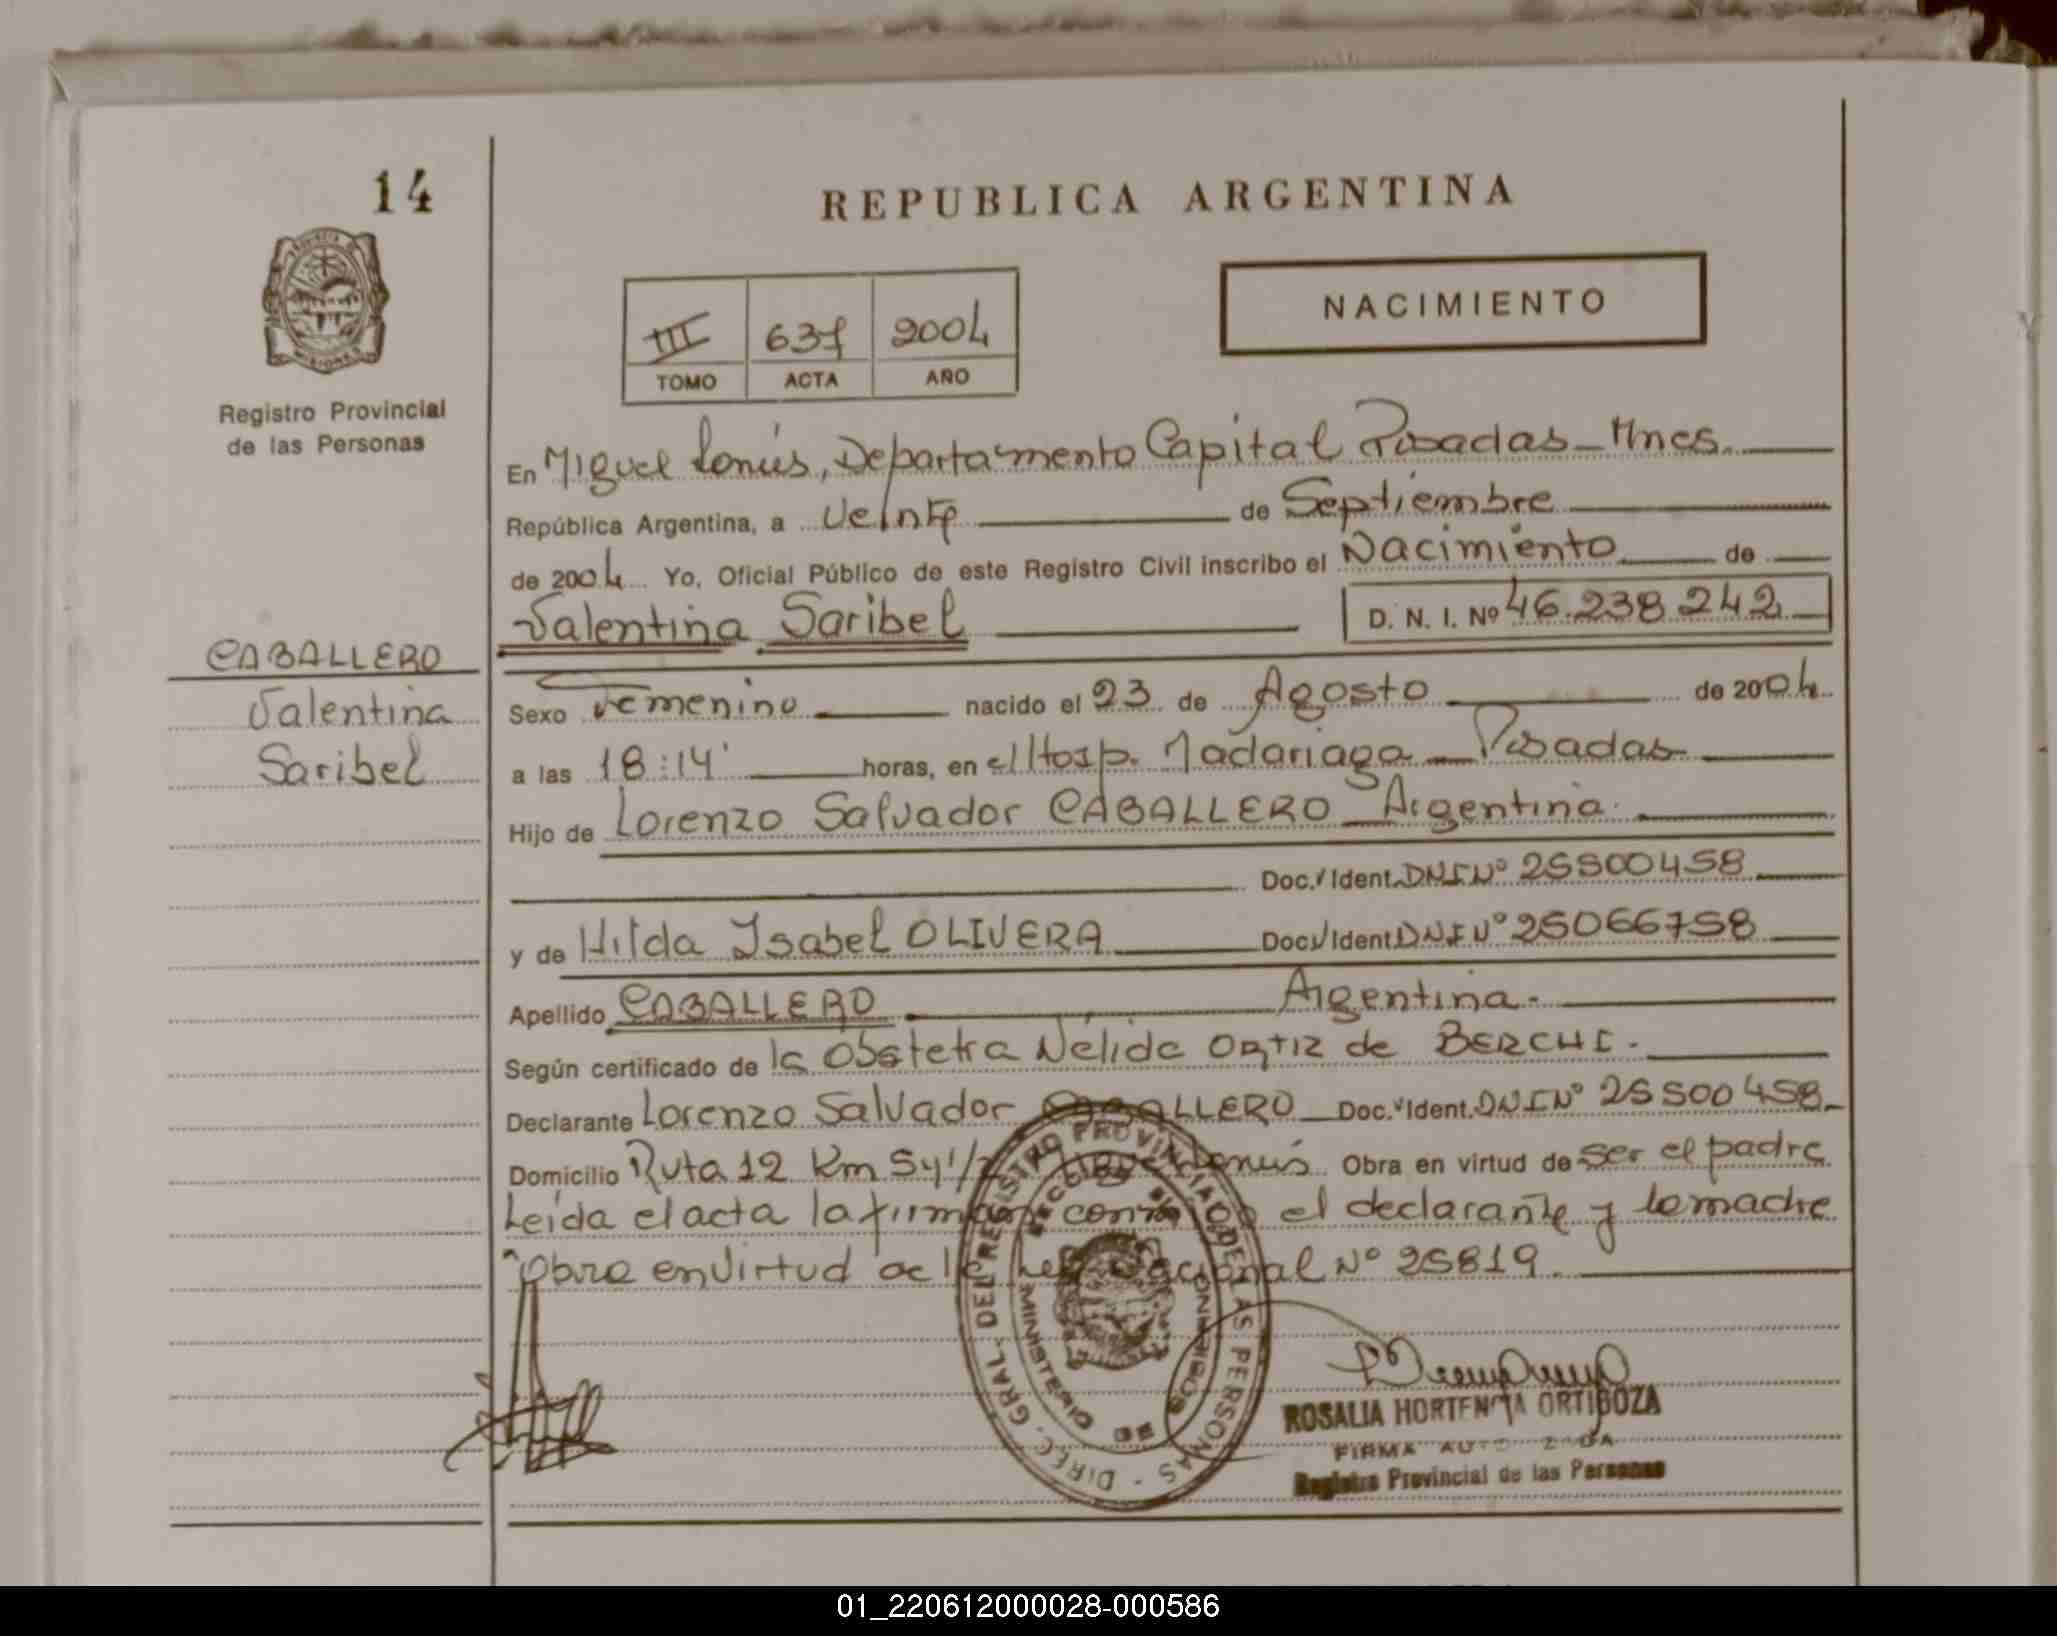 14
REPUBLICA ARGENTINA
NACIMIENTO
III 637 2004
TOMO ACTA AÑO
PROVINCIA DE
MISIONES
Registro Provincial
de las Personas
En Miguel Lanús, Departamento Capital Posadas - Mnes.
República Argentina, a veinte de Septiembre
de 2004 Yo, Oficial Público de este Registro Civil inscribo el Nacimiento de
Valentina Saribel D. N. I. Nº 46.238.242
CABALLERO
Valentina
Saribel
Sexo Femenino nacido el 23 de Agosto de 2004
a las 18:14' horas, en el Hosp. Madariaga - Posadas
Hijo de Lorenzo Salvador CABALLERO - Argentina.
Doc. Ident. DNI Nº 25500458
y de Hilda Isabel OLIVERA Doc. Ident. DNI Nº 25066758
Apellido CABALLERO Argentina.
Según certificado de la Obstetra Nélida ORTIZ de BERCHI.
Declarante Lorenzo Salvador CABALLERO Doc. Ident. DNI Nº 25500458
Domicilio Ruta 12 Km 5y1/2 Lanús Obra en virtud de ser el padre
Leída el acta la firman conmigo el declarante y la madre
Obra en virtud de la Nº 25819.
DIREC. GRAL. DEL REGISTRO PROVINCIAL DE LAS PERSONAS
MINISTERIO DE
ROSALIA HORTENCIA ORTIGOZA
FIRMA AUTORIZADA
Registro Provincial de las Personas
01_220612000028-000586